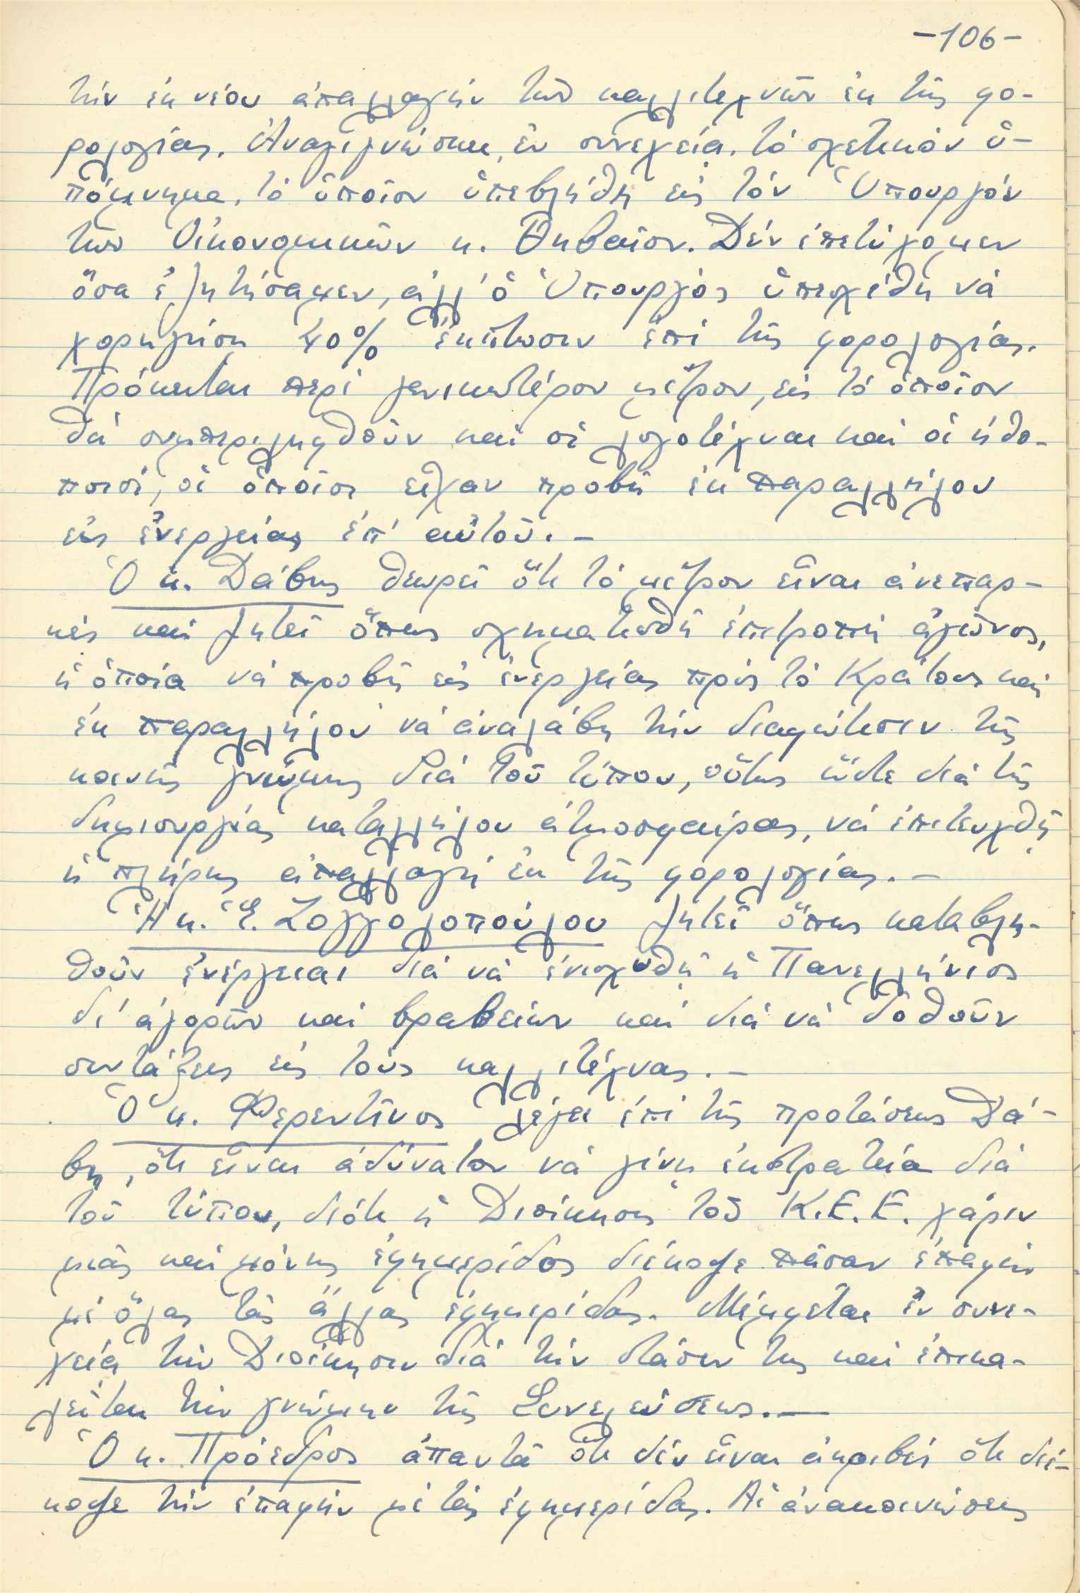 -106-
τήν ἐκ νέου ἀπαλλαγήν τῶν καλλιτεχνῶν ἐκ τῆς φο-
ρολογίας. Ἀναγιγνώσκει, ἐν συνεχείᾳ, τό σχετικόν ὑ-
πόμνημα, τό ὁποῖον ὑπεβλήθη εἰς τόν Ὑπουργόν
τῶν Οἰκονομικῶν κ. Θηβαῖον. Δέν ἐπετύχομεν
ὅσα ἐζητήσαμεν, ἀλλ' ὁ Ὑπουργός ὑπεσχέθη νά
χορηγήσῃ 40% ἔκπτωσιν ἐπί τῆς φορολογίας.
Πρόκειται περί γενικωτέρου μέτρου, εἰς τό ὁποῖον
θά συμπεριληφθοῦν καί οἱ λογοτέχναι καί οἱ ἠθο-
ποιοί, οἱ ὁποῖοι εἶχαν προβῆ ἐκ παραλλήλου
εἰς ἐνεργείας ἐπ' αὐτοῦ.-
Ὁ κ. Δάβης θεωρεῖ ὅτι τό μέτρον εἶναι ἀνεπαρ-
κές καί ζητεῖ ὅπως σχηματισθῇ ἐπιτροπή ἀγῶνος,
ἡ ὁποία νά προβῇ εἰς ἐνεργείας πρός τό Κράτος καί
ἐκ παραλλήλου νά ἀναλάβῃ τήν διαφώτισιν τῆς
κοινῆς γνώμης διά τοῦ τύπου, οὕτως ὥστε διά τῆς
δημιουργίας καταλλήλου ἀτμοσφαίρας, νά ἐπιτευχθῇ
ἡ πλήρης ἀπαλλαγή ἐκ τῆς φορολογίας.-
Ἡ κ. Ἑ. Ζογγολοπούλου ζητεῖ ὅπως καταβλη-
θοῦν ἐνέργειαι διά νά ἐνισχυθῇ ἡ Πανελλήνιος
δι' ἀγορῶν καί βραβείων καί διά νά δοθοῦν
συντάξεις εἰς τούς καλλιτέχνας.-
Ὁ κ. Φερεντῖνος λέγει ἐπί τῆς προτάσεως Δά-
βη, ὅτι εἶναι ἀδύνατον νά γίνῃ ἐκστρατεία διά
τοῦ τύπου, διότι ἡ Διοίκησις τοῦ Κ.Ε.Ε. χάριν
μιᾶς καί μόνης ἐφημερίδος διέκοψε πᾶσαν ἐπαφήν
μέ ὅλας τάς ἄλλας ἐφημερίδας. Μέμφεται ἐν συνε-
χείᾳ τήν Διοίκησιν διά τήν στάσιν της καί ἐπικα-
λεῖται τήν γνώμην τῆς Συνελεύσεως.-
Ὁ κ. Πρόεδρος ἀπαντᾶ ὅτι δέν εἶναι ἀκριβές ὅτι διέ-
κοψε τήν ἐπαφήν μέ τάς ἐφημερίδας. Αἱ ἀνακοινώσεις